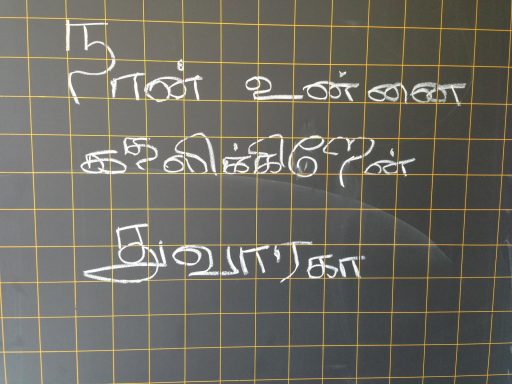 நான் உன்னை
காதலிக்கிறேன்
துவாரகா